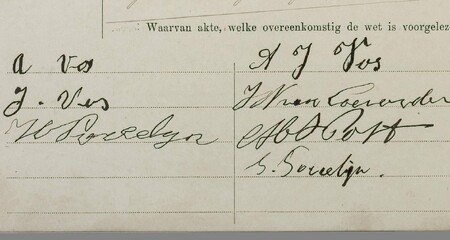 Waarvan akte, welke overeenkomstig de wet is voorgelez
A Vos
A J Vos
J. Vos
J H van Coevorden
H Gosselijn
Post
S. Gosselijn.